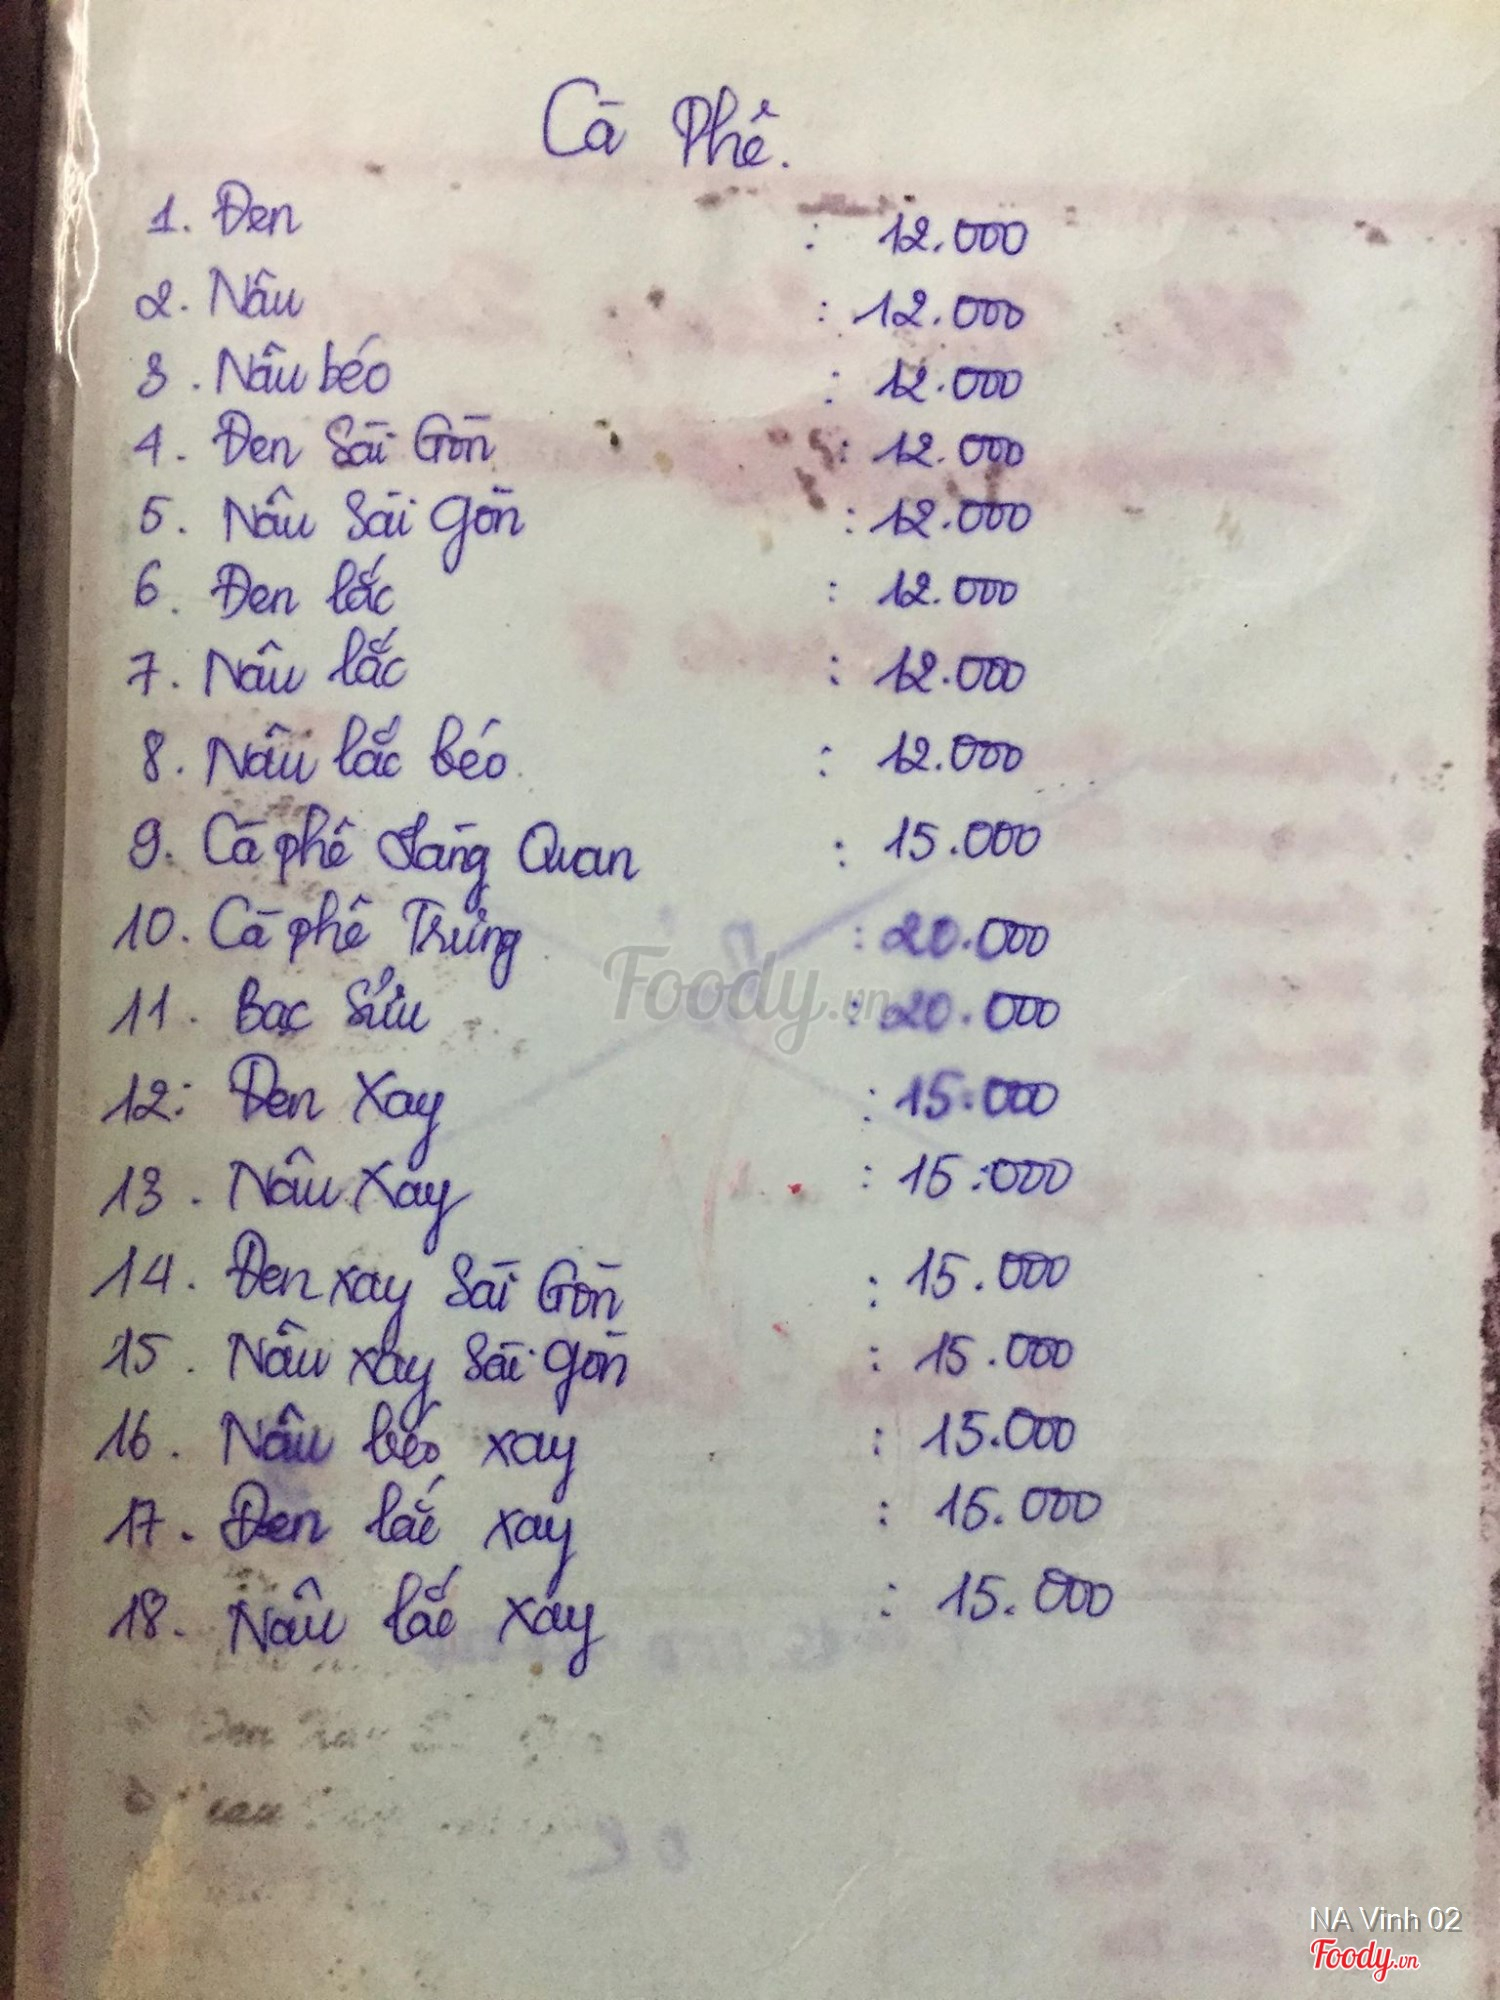 Cà Phê.
1. Đen : 12.000
2. Nâu : 12.000
3. Nâu béo : 12.000
4. Đen Sài Gòn : 12.000
5. Nâu Sài gòn : 12.000
6. Đen lắc : 12.000
7. Nâu lắc : 12.000
8. Nâu lắc béo : 12.000
9. Cà phê Hàng Quan : 15.000
10. Cà phê Trứng : 20.000
11. Bạc Sửu : 20.000
12: Đen Xay : 15.000
13. Nâu Xay : 15.000
14. Đen xay Sài Gòn : 15.000
15. Nâu xay Sài gòn : 15.000
16. Nâu béo xay : 15.000
17. Đen lắc xay : 15.000
18. Nâu lắc xay : 15.000
Foody.vn
NA Vinh 02
Foody.vn